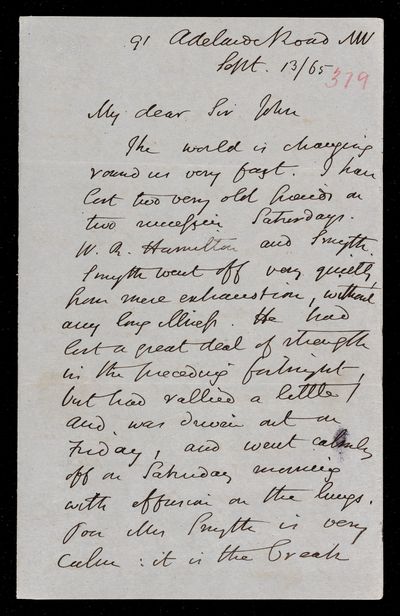 91 Adelaide Road NW
Sept. 13/65
379
My dear Sir John
The world is changing
round us very fast. I have
lost two very old friends on
two successive Saturdays.
W. R. Hamilton and Smyth.
Smyth went off very quietly,
from mere exhaustion, without
any long illness. He had
lost a great deal of strength
in the preceding fortnight,
but had rallied a little,
and was driven out on
Friday, and went calmly
off on Saturday morning
with effusion on the lungs.
Poor Mrs Smyth is very
calm: it is the break